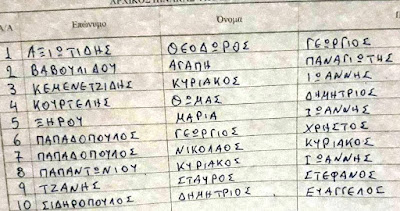 ΑΡΧΙΚΟΣ ΠΙΝΑΚΑΣ
Α/Α Επώνυμο Όνομα Π
1 ΑΞΙΩΤΙΔΗΣ ΘΕΟΔΩΡΟΣ ΓΕΩΡΓΙΟΣ
2 ΒΑΒΟΥΛΙΔΟΥ ΑΓΑΠΗ ΠΑΝΑΓΙΩΤΗΣ
3 ΚΕΜΕΝΕΤΖΙΔΗΣ ΚΥΡΙΑΚΟΣ ΙΩΑΝΝΗΣ
4 ΚΟΥΡΤΕΛΗΣ ΘΩΜΑΣ ΔΗΜΗΤΡΙΟΣ
5 ΞΗΡΟΥ ΜΑΡΙΑ ΙΩΑΝΝΗΣ
6 ΠΑΠΑΔΟΠΟΥΛΟΣ ΓΕΩΡΓΙΟΣ ΧΡΗΣΤΟΣ
7 ΠΑΠΑΔΟΠΟΥΛΟΣ ΝΙΚΟΛΑΟΣ ΚΥΡΙΑΚΟΣ
8 ΠΑΠΑΝΤΩΝΙΟΥ ΚΥΡΙΑΚΟΣ ΙΩΑΝΝΗΣ
9 ΤΖΑΝΗΣ ΣΤΑΥΡΟΣ ΣΤΕΦΑΝΟΣ
10 ΣΙΔΗΡΟΠΟΥΛΟΣ ΔΗΜΗΤΡΙΟΣ ΕΥΑΓΓΕΛΟΣ